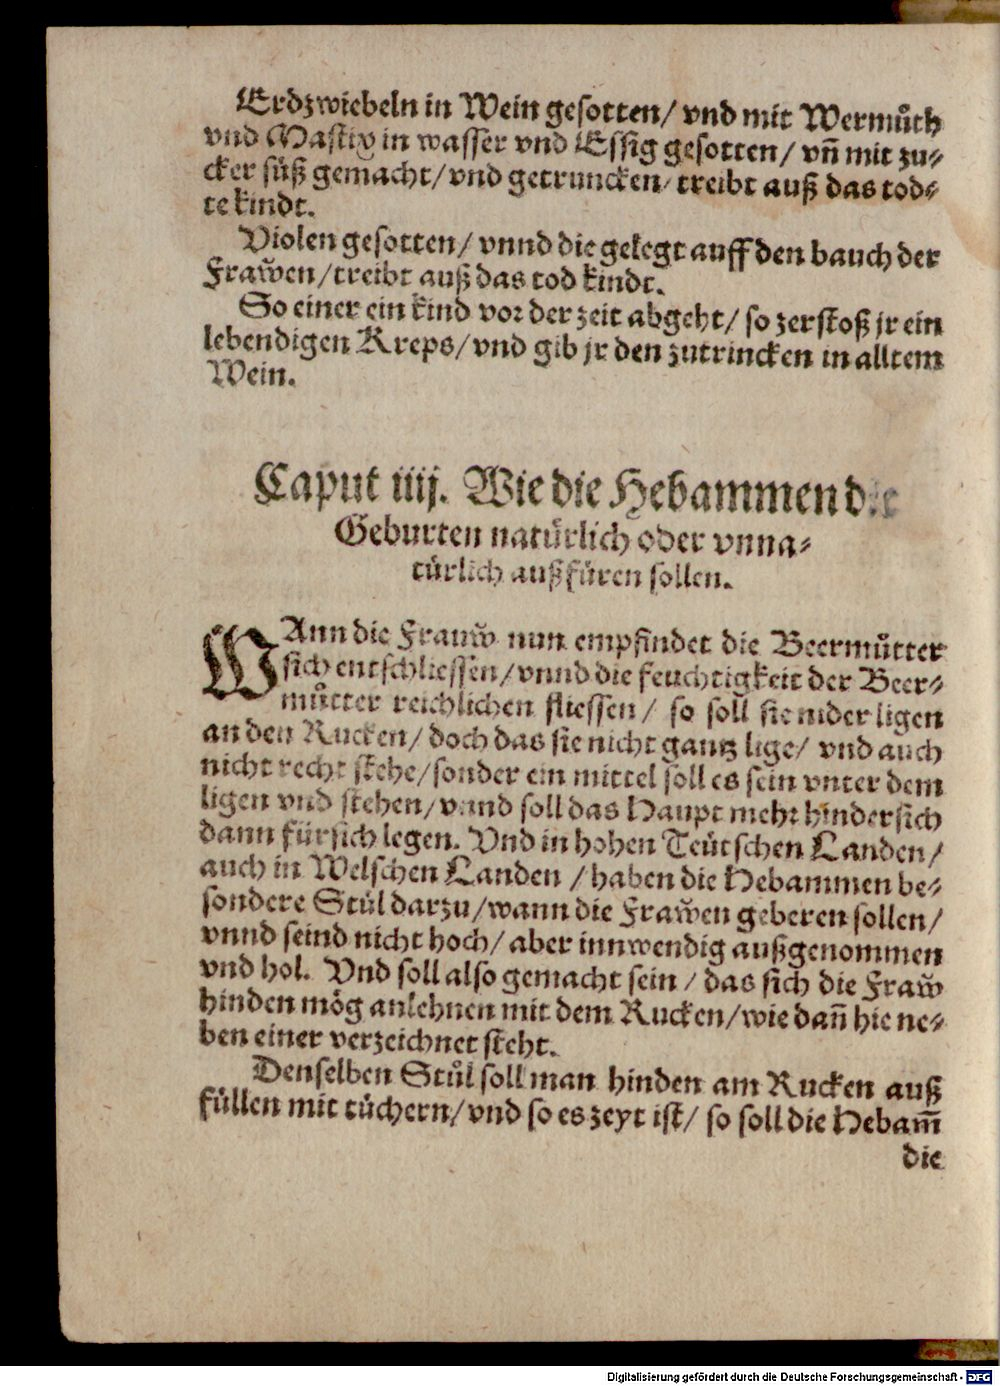 Erdzwiebeln in Wein gesotten/ vnd mit Wermůth
vnd Mastix in wasser vnd Essig gesotten/ vn̄ mit zu⸗
cker süß gemacht/ vnd getruncken/ treibt auß das tod⸗
te kindt.
Violen gesotten/ vnnd die gelegt auff den bauch der
Frauwen/ treibt auß das tod kindt.
So einer ein kind vor der zeit abgeht/ so zerstoß jr ein
lebendigen Kreps/ vnd gib jr den zutrincken in alltem
Wein.
Caput iiij. Wie die Hebammen die
Geburten natürlich oder vnna⸗
türlich außfüren sollen.
WAnn die Frauw nun empfindet die Beermůtter
sich entschliessen/ vnnd die feuchtigkeit der Beer⸗
můtter reichlichen fliessen/ so soll sie nider ligen
an den Rucken/ doch das sie nicht gantz lige/ vnd auch
nicht recht stehe/ sonder ein mittel soll es sein vnter dem
ligen vnd stehen/ vnnd soll das Haupt mehr hindersich
dann fürsich legen. Vnd in hohen Teütschen Landen/
auch in Welschen Landen / haben die Hebammen be⸗
sondere Stül darzu/ wann die Frawen geberen sollen/
vnnd seind nicht hoch/ aber innwendig außgenommen
vnd hol. Vnd soll also gemacht sein / das sich die Fraw
hinden mög anlehnen mit dem Rucken/ wie dan̄ hie ne⸗
ben einer verzeichnet steht.
Denselben Stůl soll man hinden am Rucken auß
füllen mit tüchern/ vnd so es zeyt ist/ so soll die Hebam̄
die
Digitalisierung gefördert durch die Deutsche Forschungsgemeinschaft - DFG